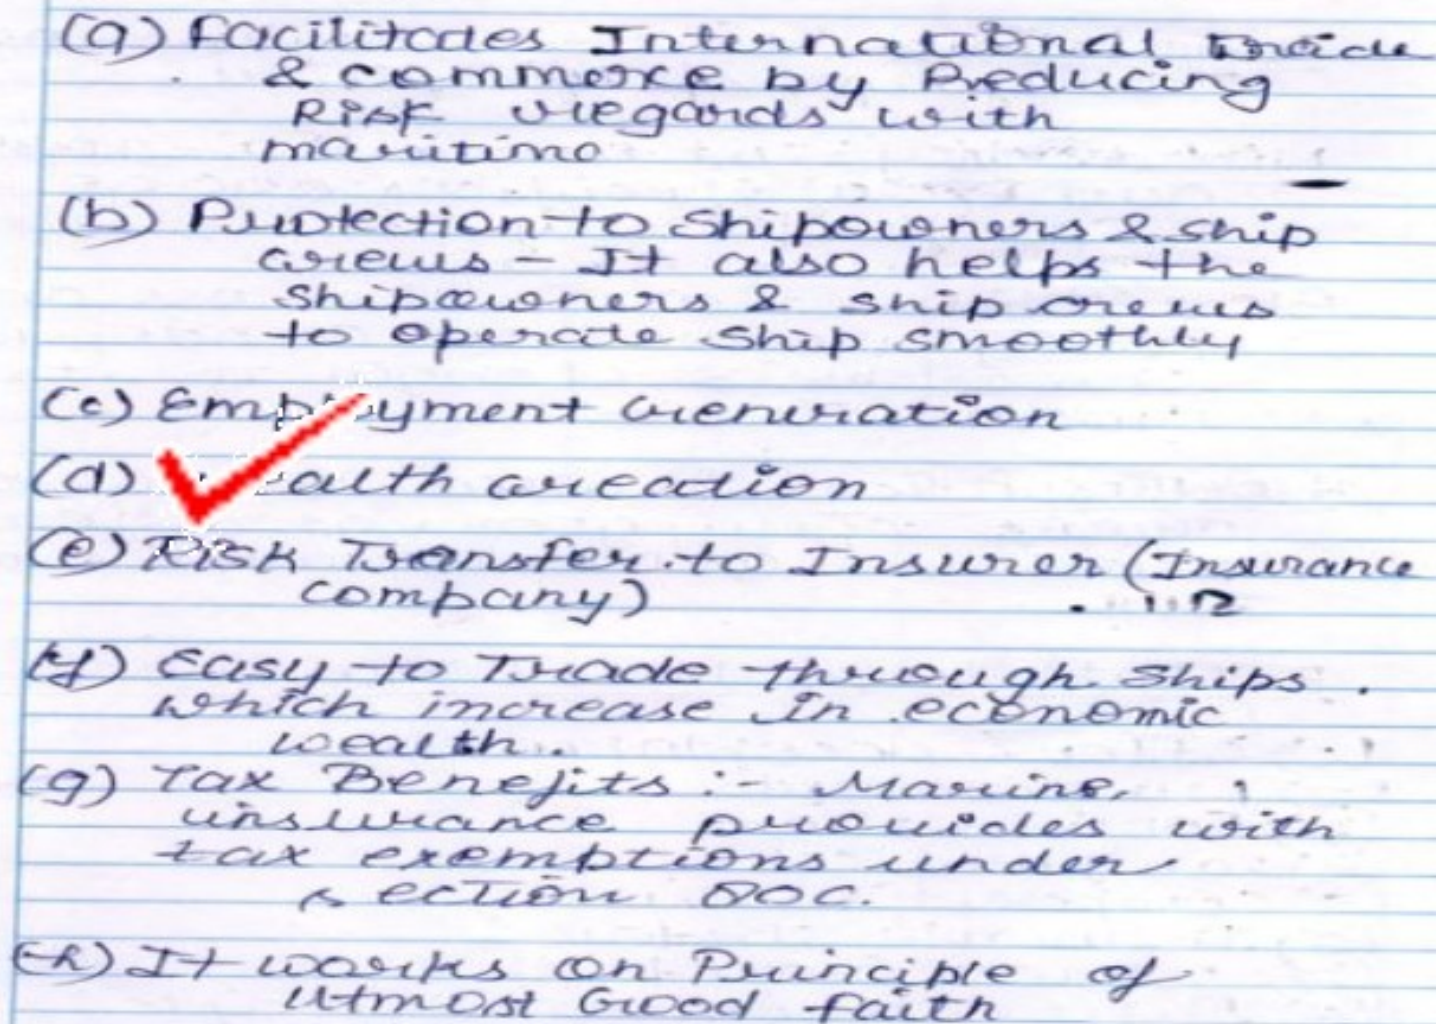 (a) Facilitates International Trade
& commerce by Reducing
Risk regards with
maritime
(b) Protection to Shipowners & ship
crews - It also helps the
Shipowners & ship crews
to operate Ship smoothly
(c) Employment Generation
(d) Wealth creation
(e) Risk Transfer to Insurer (Insurance
company)
(f) Easy to Trade through Ships.
which increase in economic
wealth.
(g) Tax Benefits :- Marine
insurance provides with
tax exemptions under
section 80C.
(h) It works on Principle of
Utmost Good faith